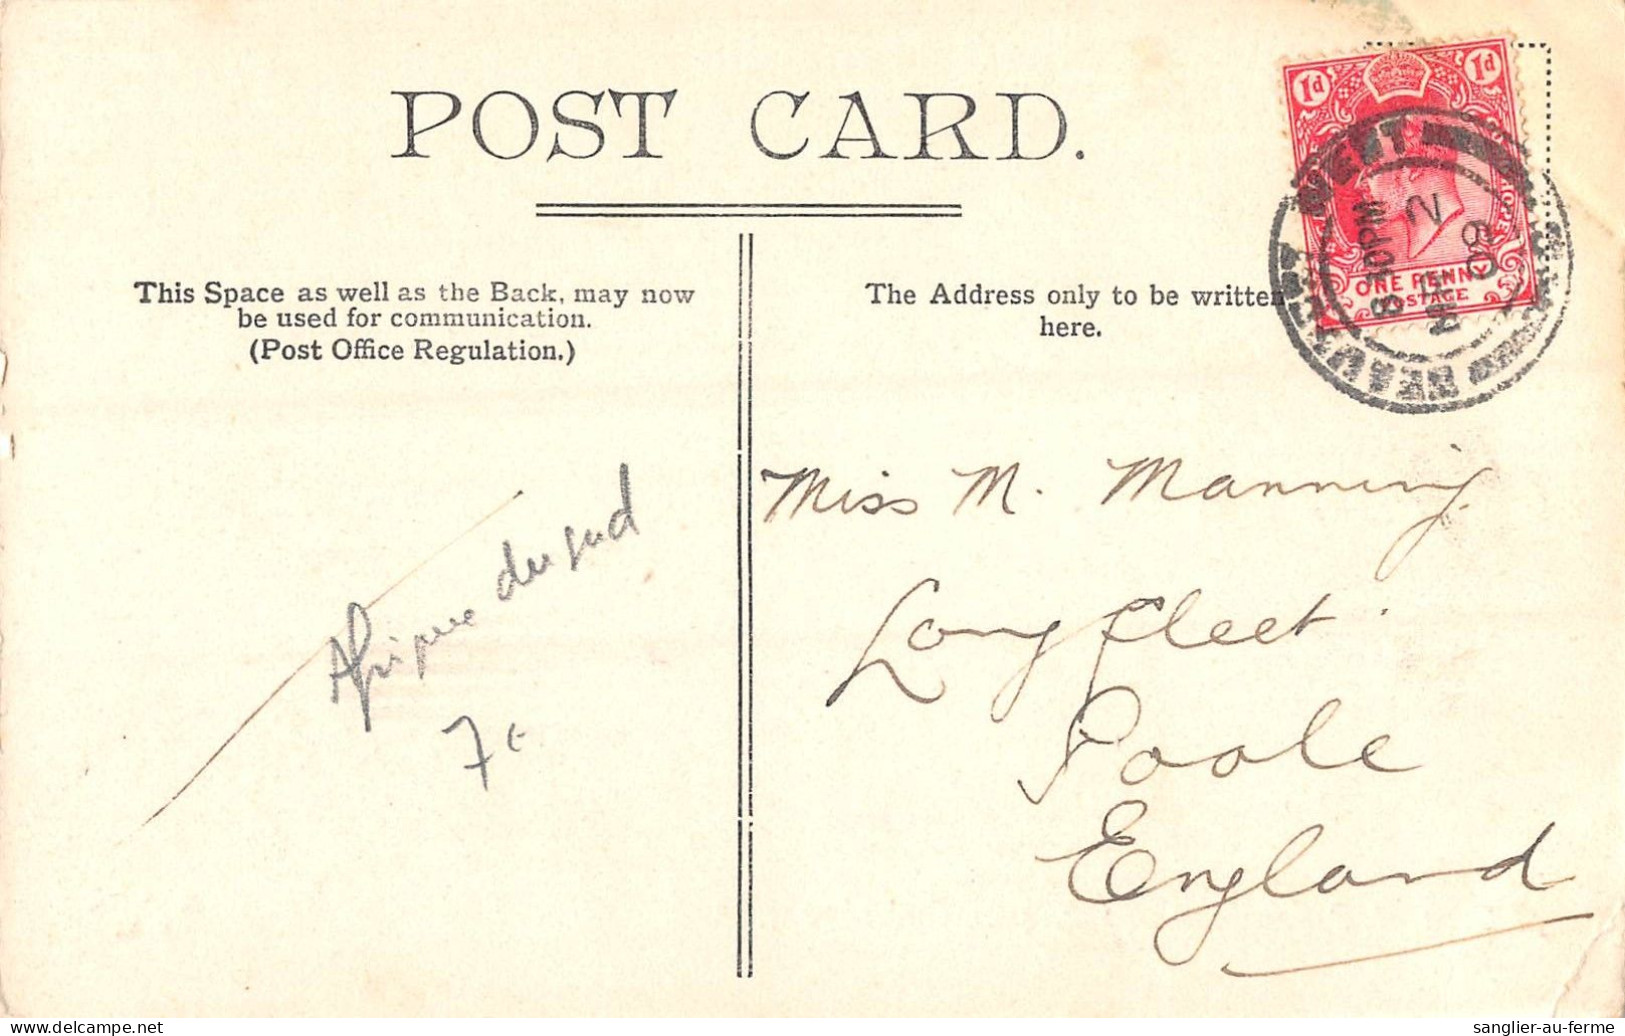 POST CARD.
This Space as well as the Back, may now
be used for communication.
(Post Office Regulation.)
The Address only to be written
here.
1d 1d
ONE PENNY
POSTAGE
WEST
BEAUFORT
8 30 PM
2
09
Miss M. Manning.
Longfleet
Poole
England
Afrique du sud
7€
sanglier-au-ferme